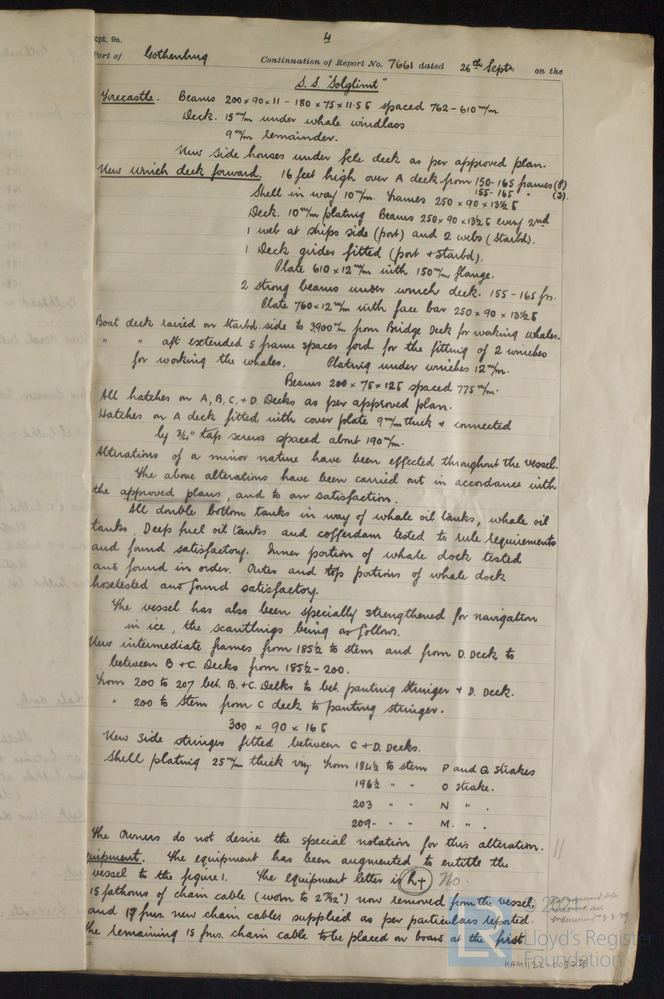 Rpt. 9a.
4
Port of Gothenburg Continuation of Report No. 7661 dated 26th Septr. on the
S.S. "Solglimt"
Forecastle. Beams 200 x 90 x 11 - 180 x 75 x 11.5 [ spaced 762 - 610 m/m
Deck. 15 m/m under whale windlass
9 m/m remainder.
New Side houses under fcle deck as per approved plan.
New winch deck forward. 16 feet high over A deck from 150-165 frames (P)
155-165 " (S).
Shell in way 10 m/m. Frames 250 x 90 x 13½ [
Deck. 10 m/m plating Beams 250 x 90 x 13½ [ every 2nd
1 web at ships side (port) and 2 webs (Starbd).
1 Deck girder fitted (port + Starbd).
Plate 610 x 12 m/m with 150 m/m flange.
2 strong beams under winch deck. 155-165 frs.
Plate 760 x 12 m/m with face bar 250 x 90 x 13½ [
Boat deck raised on Starbd. side to 3900 m/m from Bridge Deck for working whales.
" " aft extended 5 frame spaces ford for the fitting of 2 winches
for working the whales. Plating under winches 12 m/m.
Beams 200 x 75 x 12 [ spaced 775 m/m.
All hatches on A, B, C, + D Decks as per approved plan.
Hatches on A deck fitted with cover plate 9 m/m thick & connected
by 3/4" tap screws spaced about 190 m/m.
Alterations of a minor nature have been effected throughout the vessel.
The above alterations have been carried out in accordance with
the approved plans, and to our satisfaction.
All double bottom tanks in way of whale oil tanks, whale oil
tanks, Deep fuel oil tanks and cofferdam tested to rule requirements
and found satisfactory. Inner portion of whale dock tested
and found in order. Outer and top portions of whale dock
hosetested and found satisfactory.
The vessel has also been specially strengthened for navigation
in ice, the scantlings being as follows.
New intermediate frames from 185½ to stem and from D. Deck to
between B + C. Decks from 185½ - 200.
From 200 to 207 bet. B. + C. Decks to bet. panting stringer + D. Deck.
" 200 to Stem from C deck to panting stringer.
300 x 90 x 16 [
New Side stringer fitted between C + D. Decks.
Shell plating 25 m/m thick viz. From 184½ to stem P and Q Strakes
196½ " " O Strake.
203 " " N " .
209 - " " M. " .
The Owners do not desire the special notation for this alteration.
Equipment. The equipment has been augmented to entitle the
vessel to the figure 1. The equipment letter is R+ No.
15 fathoms of chain cable (worn to 2 7/32") now removed from the vessel,
and 17 fms. new chain cables supplied as per particulars reported.
The remaining 15 fms. chain cable to be placed on board at the first
Lloyd's Register
Foundation